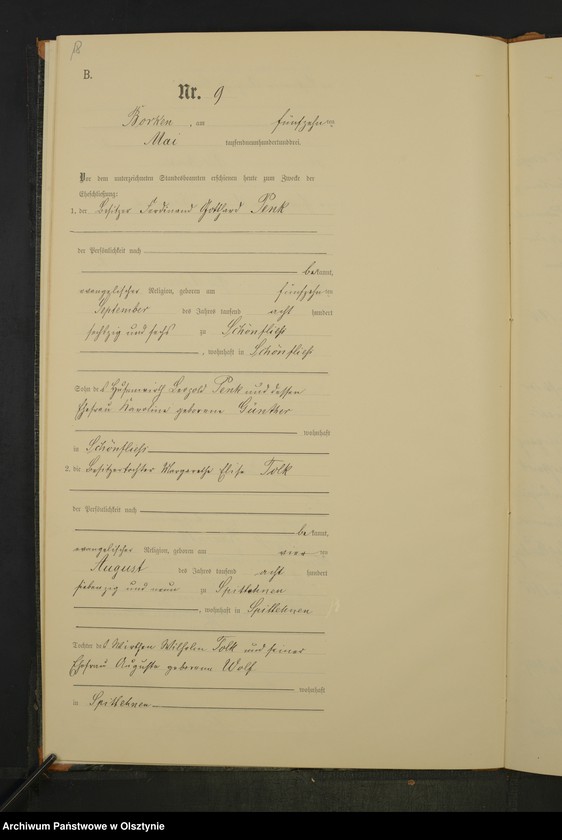 18
B.
Nr. 9
Borken, am fünfzehnten
Mai tausendneunhundertunddrei.
Vor dem unterzeichneten Standesbeamten erschienen heute zum Zwecke der
Eheschließung:
1. der Besitzer Ferdinand Gotthard Penk
der Persönlichkeit nach
bekannt,
evangelischer Religion, geboren am fünfzehnten
September des Jahres tausend acht hundert
sechszig und sechs zu Schönfließ
, wohnhaft in Schönfließ
Sohn des Leopold Penk und dessen
Ehefrau Karoline geborene Günther
wohnhaft
in Schönfließ
2. die Besitzertochter Margarethe Elise Tolk
der Persönlichkeit nach
bekannt,
evangelischer Religion, geboren am vierten
August des Jahres tausend acht hundert
siebenzig und neun zu Spittehnen
, wohnhaft in Spittehnen
Tochter des Wirthen Wilhelm Tolk und seiner
Ehefrau Auguste geborene Wolf
wohnhaft
in Spittehnen
Archiwum Państwowe w Olsztynie